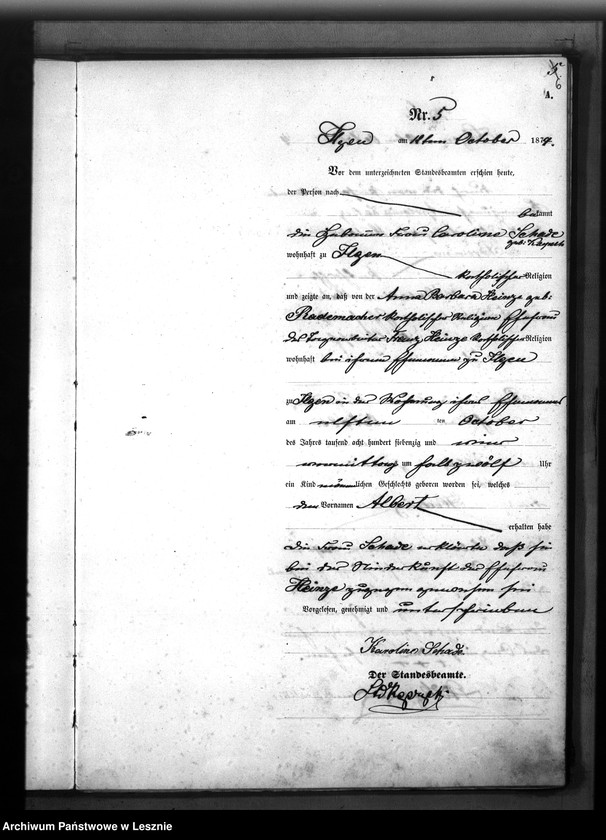 A.
Nr. 5
Ilgen am 12ten October 1874.
Vor dem unterzeichneten Standesbeamten erschien heute,
der Person nach
bekannt
die Hebamme Frau Caroline Schade
geb:
wohnhaft zu Ilgen
katholischer Religion
und zeigte an, daß von der Anna Barbara Heinze geb:
Rademacher katholischer Religion Ehefrau
des Franz Heinze katholischer Religion
wohnhaft bei ihrem Ehemanne zu Ilgen
zu Ilgen in der Wohnung ihres Ehemannes
am elften ten October
des Jahres tausend acht hundert siebenzig und vier
vormittags um halb zwölf Uhr
ein Kind männlichen Geschlechts geboren worden sei, welches
den Vornamen Albert
erhalten habe
Die Frau Schade erklärte daß sie
bei der Niederkunft der Ehefrau
Heinze zugegen gewesen sei
Vorgelesen, genehmigt und unterschrieben
Karoline Schade
Der Standesbeamte.
Archiwum Państwowe w Lesznie